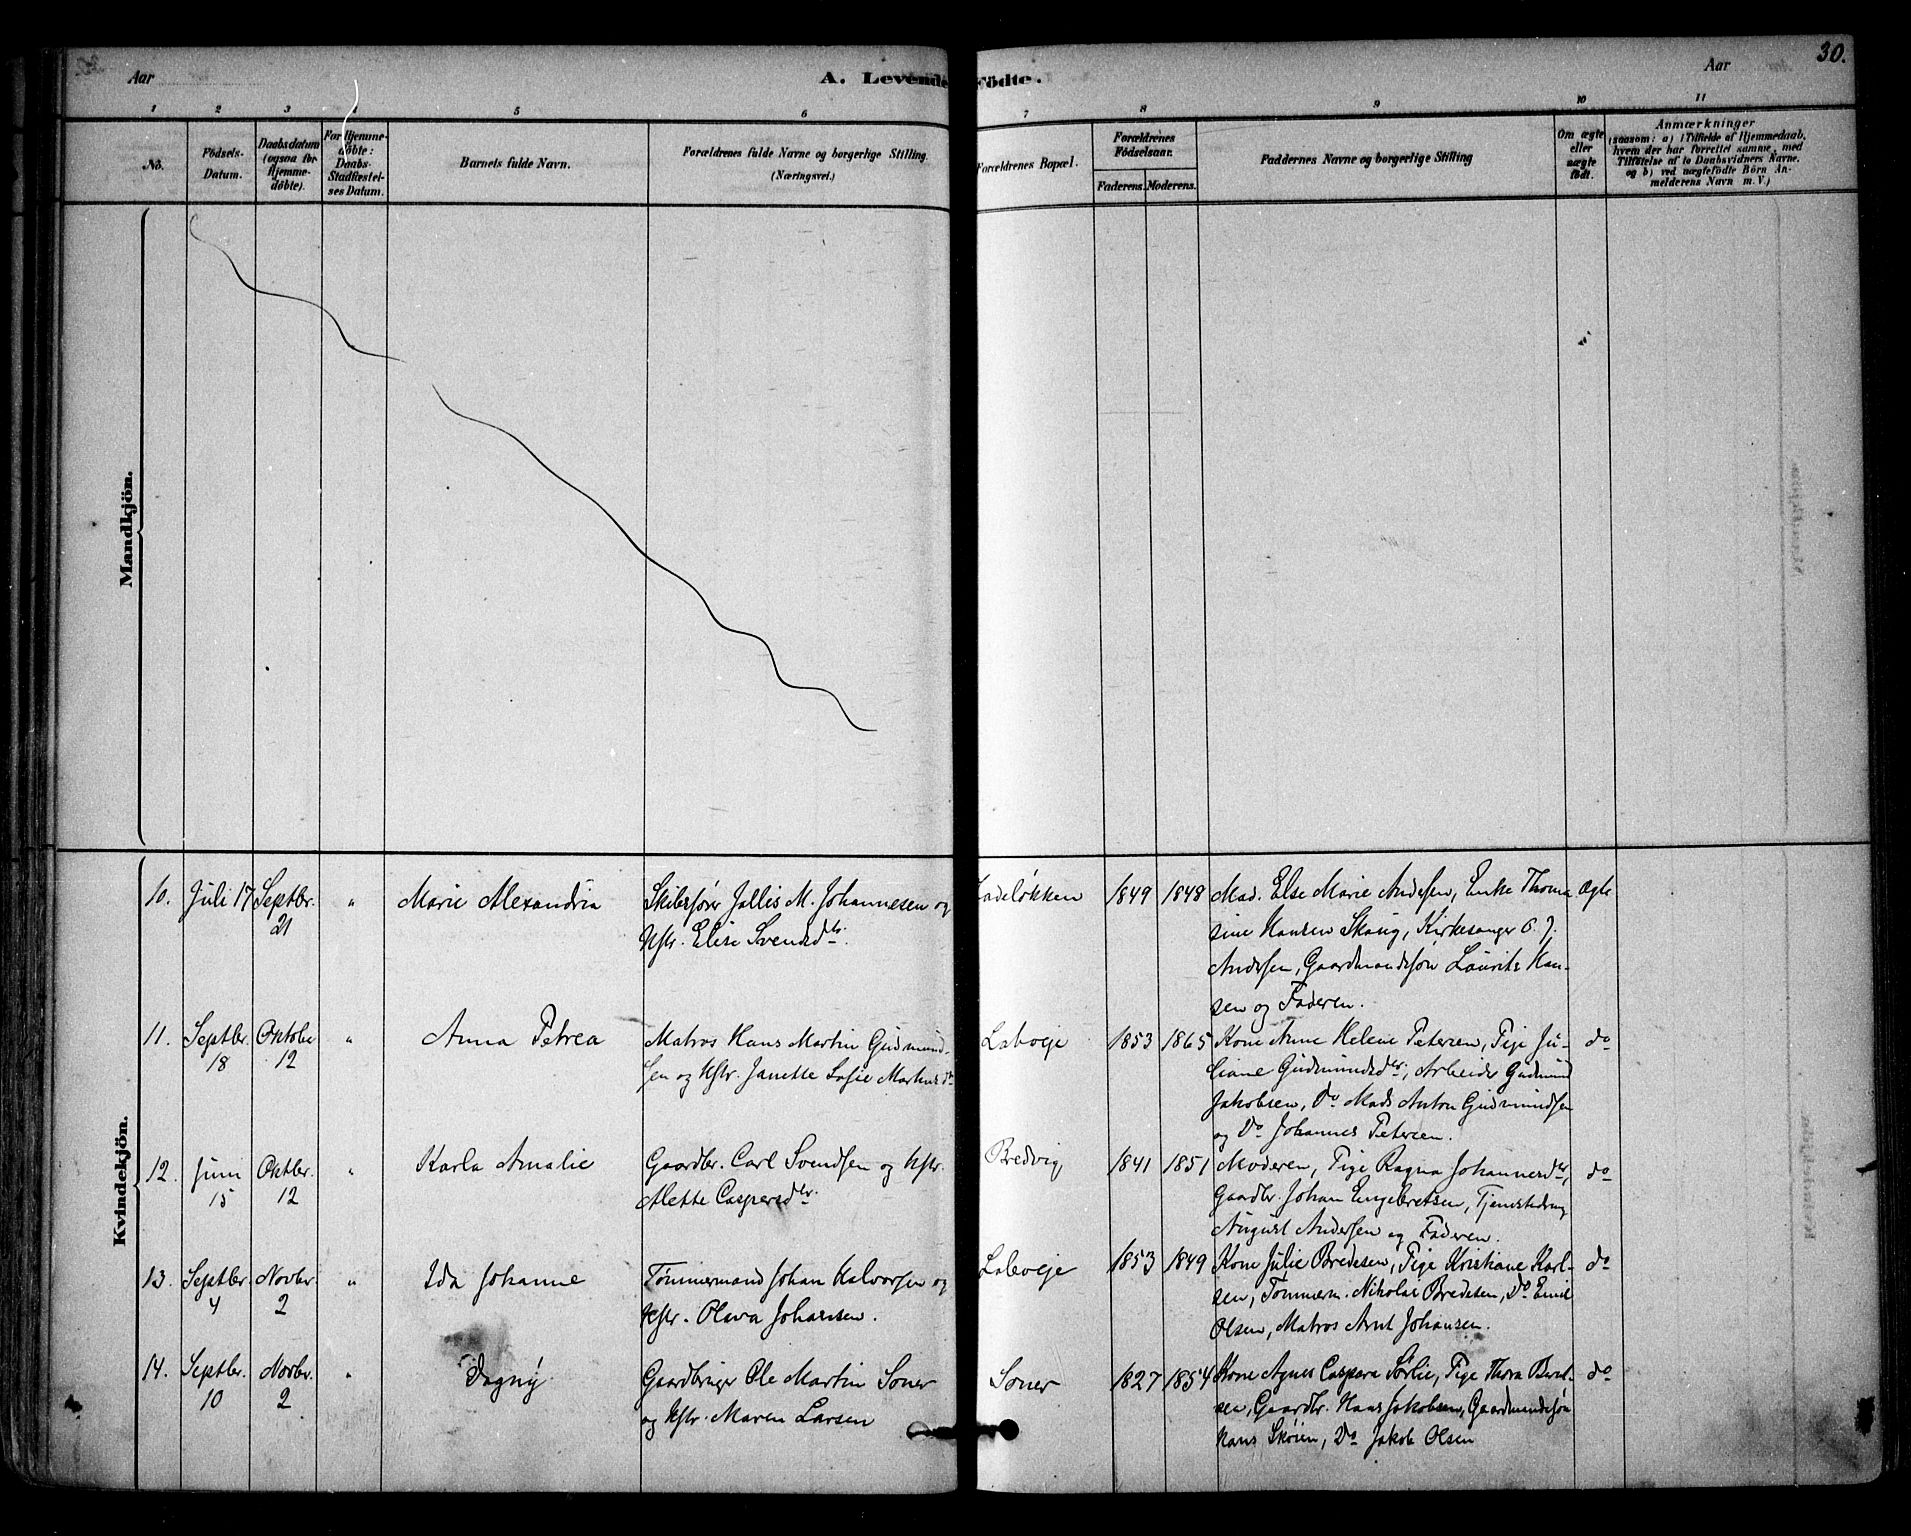 30.
Aar
A. Levende Födte.
Aar
1 2 3 4 5 6 7 8 9 10 11
No.
Födsels-Datum.
Daabsdatum (ogsaa for Hjemme-döbte).
For Hjemme-döbte: Daabs-Stadfæstel-ses Datum.
Barnets fulde Navn.
Forældrenes fulde Navne og borgerlige Stilling.
(Næringsvei.)
Forældrenes Bopæl.
Forældrenes Fødselsaar.
Faderens. Moderens.
Faddernes Navne og borgerlige Stilling
Om ægte eller uægte födt.
Anmærkninger
(saasom: a) i Tilfælde af Hjemmedaab,
hvem der har forrettet samme, med
Tilföielse af to Daabsvidners Navne,
og b) ved uægtefödte Börn An-
melderens Navn m. V.)
Mandkjön.
Kvindekjön.
10. Juli 17 Septbr. 21 " Marie Alexandria
Skibsfører Jallis M. Johannesen og
Hstr. Elise Svendsdtr.
Ladeløkken 1849 1848
Mad. Else Marie Andersen, Enke Thoma
sine Hansen Skaug, Kirkesanger O. J.
Andersen, Gaardmandssøn Laurits Han-
sen og Faderen.
Ægte
11. Septbr. 18 Oktober 12 " Anna Petrea
Matros Hans Martin Gudmund-
sen og Hstr. Janette Sofie Martinsdtr
Labveje 1853 1865
Kone Anne Helene Petersen, Pige Ju-
liane Gudmundsdtr, Arbeider Gudmund
Jakobsen, Do Mads Anton Gudmundsen
og Do Johannes Petersen.
do
12. Juni 15 Oktbr. 12 " Karla Amalie
Gaardbr. Carl Svendsen og Hstr.
Alette Caspersdtr.
Bredvig 1841 1851
Moderen, Pige Ragna Johannesdtr,
Gaardbr. Johan Engebretsen, Tjenestedreng
August Andersen og Faderen.
do
13. Septbr. 4 Novbr. 2 " Ida Johanne
Tømmermand Johan Halvorsen og
Hstr. Olava Johansen.
Labveje 1853 1849
Kone Julie Bredesen, Pige Kristiane Karl-
sen, Tømmerm. Nikolai Bredesen, Do Emil
Olsen, Matros Arnt Johansen.
do
14. Septbr. 10 Novbr. 2 " Dagny
Gaardbruger Ole Martin Soner
og Hstr. Maren Larsen
Soner 1827 1854
Kone Agnes Caspara Sørlie, Pige Thora Berel-
sen, Gaardbr. Hans Jakobsen, Gaardmandssøn
Hans Skøien, Do Jakob Olsen
do